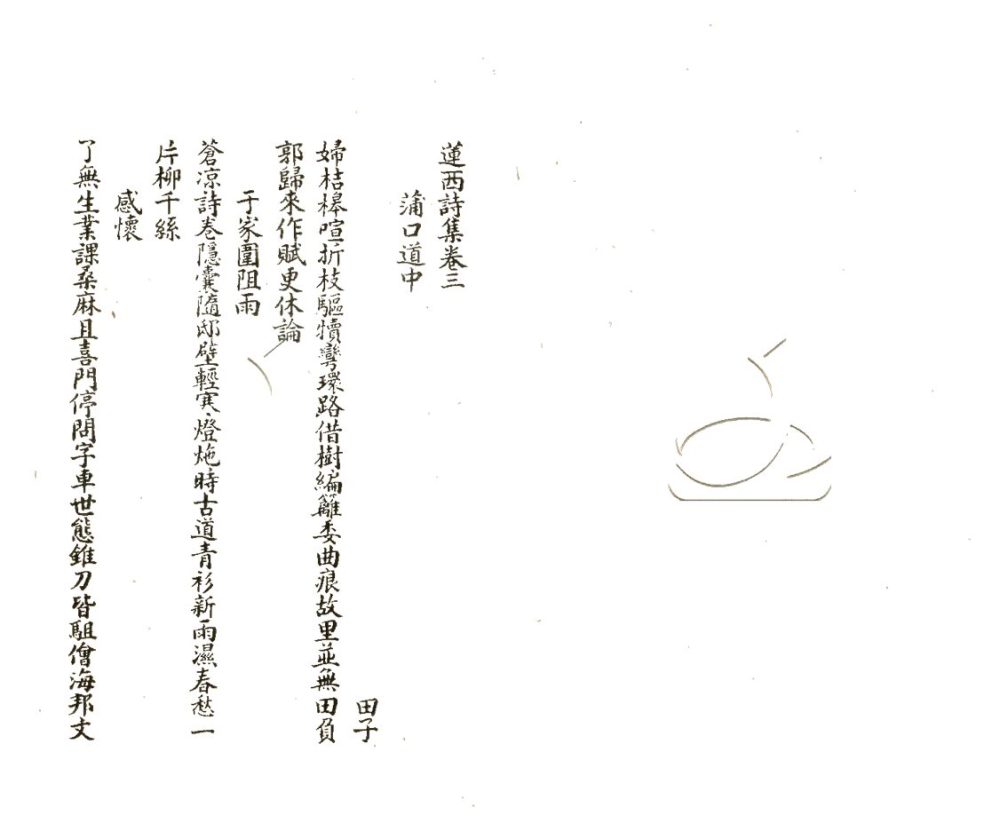 蓮西詩集卷三
蒲口道中
田子
婦桔槹喧折枝驅犢彎環路借樹編籬委曲痕故里並無田負
郭歸來作賦更休論
于家圍阻雨
蒼凉詩卷隱囊隨邸壁輕寒燈灺時古道青衫新雨濕春愁一
片柳千絲
感懷
了無生業課桑麻且喜門停問字車世態錐刀皆駔儈海邦文